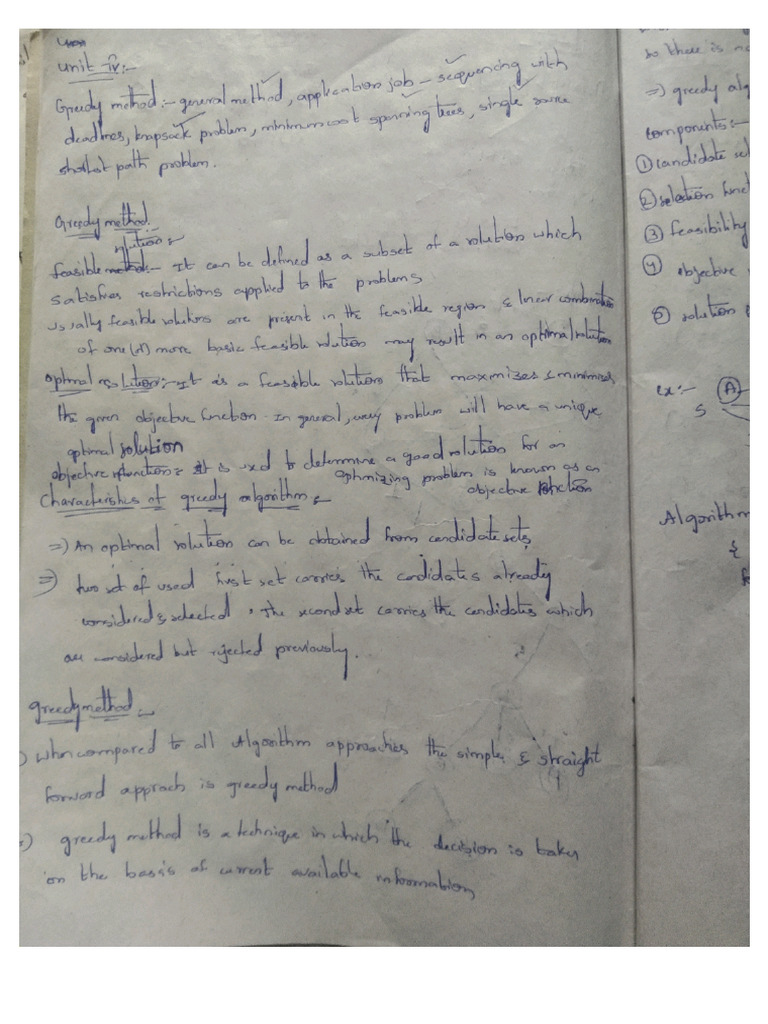 unit-iv:-
Greedy method:- general method, application job - sequencing with
deadlines, knapsack problem, minimum cost spanning trees, single source
shortest path problem.
Greedy method.
solutions
feasible method:- It can be defined as a subset of a solution which
satisfies restrictions applied to the problems.
usually feasible solutions are present in the feasible region & linear combination
of one (or) more basic feasible solution may result in an optimal solution
optimal solution:- It is a feasible solution that maximizes & minimizes
the given objective function. In general, every problem will have a unique
optimal solution
objective function: It is used to determine a good solution for an
optimizing problem is known as an
objective function
Characteristics of greedy algorithm:
=> An optimal solution can be obtained from candidate sets.
=> two set of used first set carries the candidates already
considered & selected, the second set carries the candidates which
are considered but rejected previously.
greedy method:-
) when compared to all Algorithm approaches the simple & straight
forward approach is greedy method
) greedy method is a technique in which the decision is taken
on the basis of current available information
so there is
=) greedy alg
components:-
① candidate se
② selection func
③ feasibility
④ objective
⑤ solution
ex:- A
S
Algorithm
{